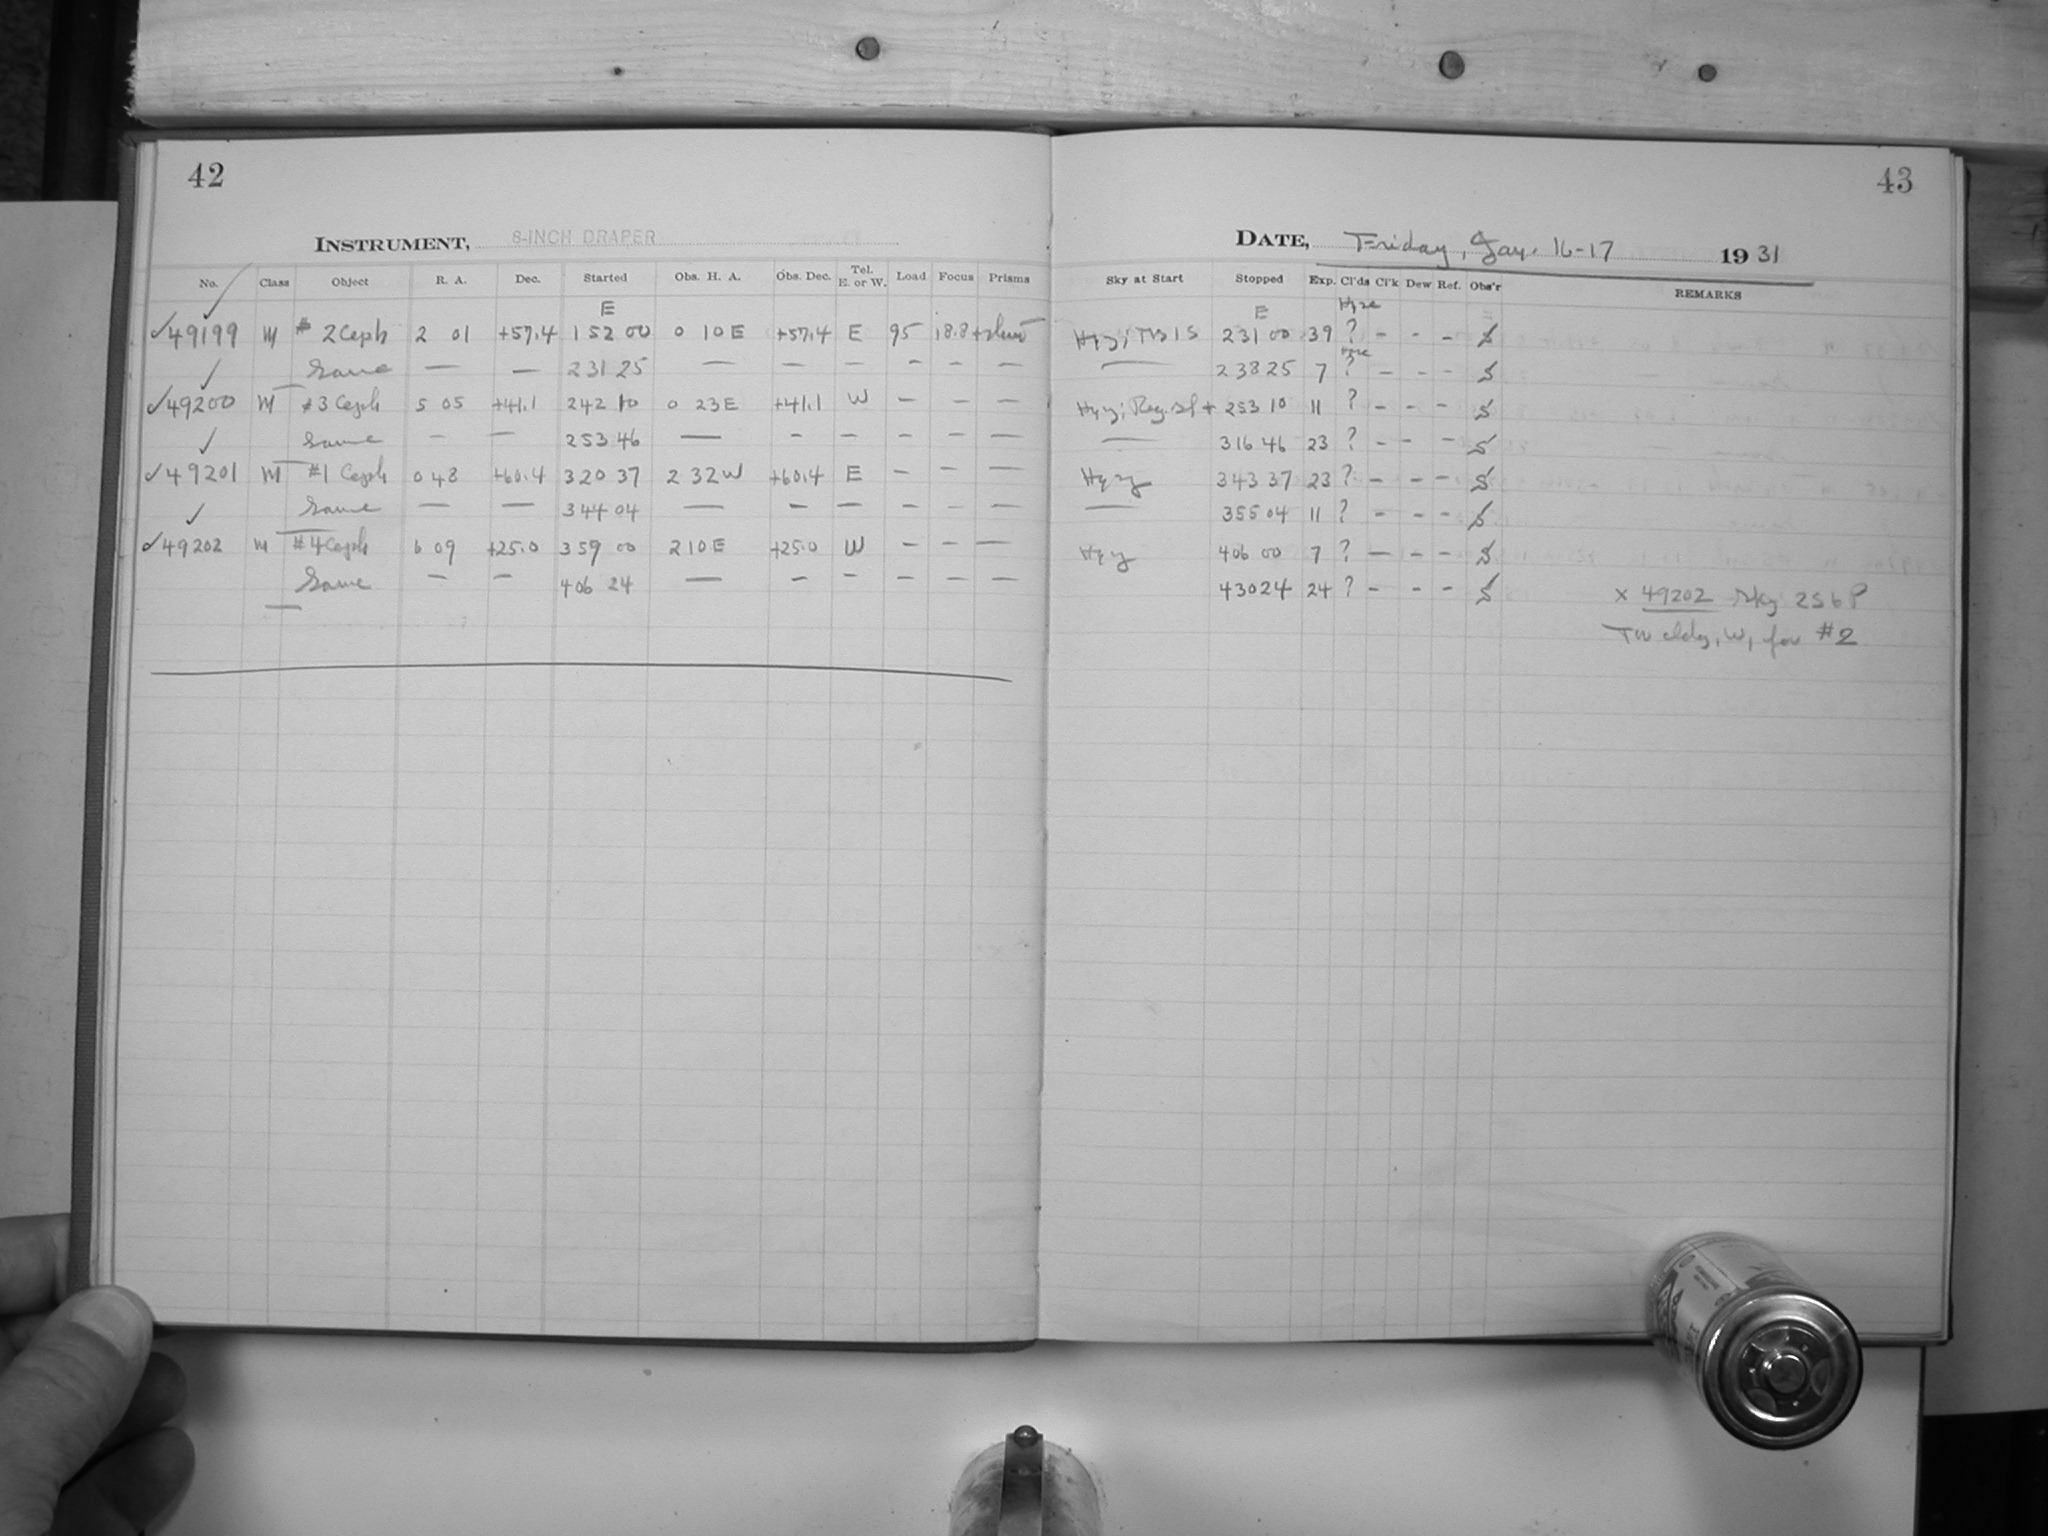 42
INSTRUMENT, 8-INCH DRAPER
No. Class Object R. A. Dec. Started Obs. H. A. Obs. Dec. Tel. E. or W. Load Focus Prisms
E
✓49199 M # 2 Ceph 2 01 +57.4 1 52 00 0 10 E +57.4 E 95 18.8
✓ Same — — 2 31 25 — — — — — —
✓49200 M #3 Ceph 5 05 +41.1 2 42 10 0 23 E +41.1 W — — —
✓ Same — — 2 53 46 — — — — — —
✓49201 M #1 Ceph 0 48 +60.4 3 20 37 2 32 W +60.4 E — — —
✓ Same — — 3 44 04 — — — — — —
✓49202 M #4 Ceph 6 09 +25.0 3 59 00 2 10 E +25.0 W — — —
Same — — 4 06 24 — — — — — —
43
DATE, Friday, Jan. 16-17 1931
Sky at Start Stopped Exp. Cl'ds Cl'k Dew Ref. Obs'r REMARKS
E Hze
Hzy; 2 31 00 39 ? - - - S
— 2 38 25 7 ? - - - S
Hzy; 2 53 10 11 ? - - - S
— 3 16 46 23 ? - - - S
Hzy 3 43 37 23 ? - - - S
— 3 55 04 11 ? - - - S
Hzy 4 06 00 7 ? - - - S
4 30 24 24 ? - - - S
x 49202 Sky 256P
cldy, W, for #2